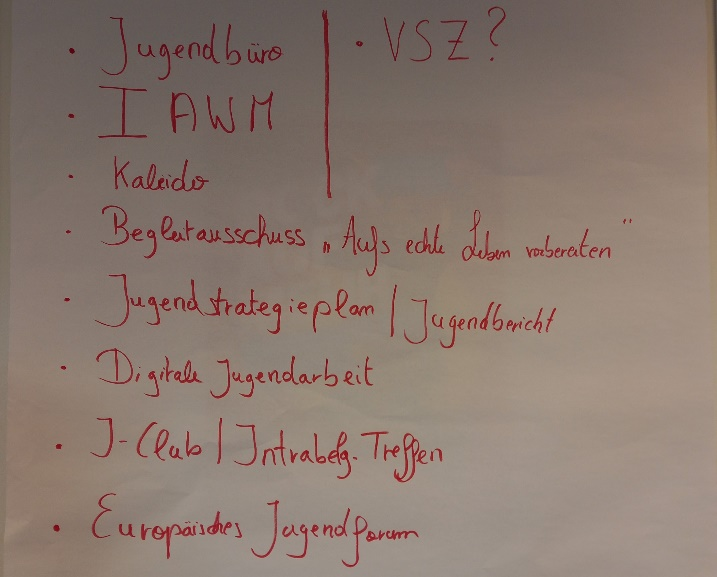 • Jugendbüro
• IAWM
• Kaleido
• Begleitausschuss „Aufs echte Leben vorbereiten"
• Jugendstrategieplan / Jugendbericht
• Digitale Jugendarbeit
• J-Club / Intrabelg. Treffen
• Europäisches Jugendforum
• VSZ?